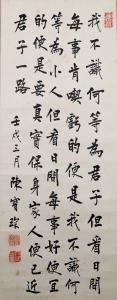 我不識何等為君子但看日間
每事肯喫虧的便是我不識何
等為小人但看日間每事好便宜
的便是要真實保身家人便已近
君子一路
壬戌三月 陳寶琛